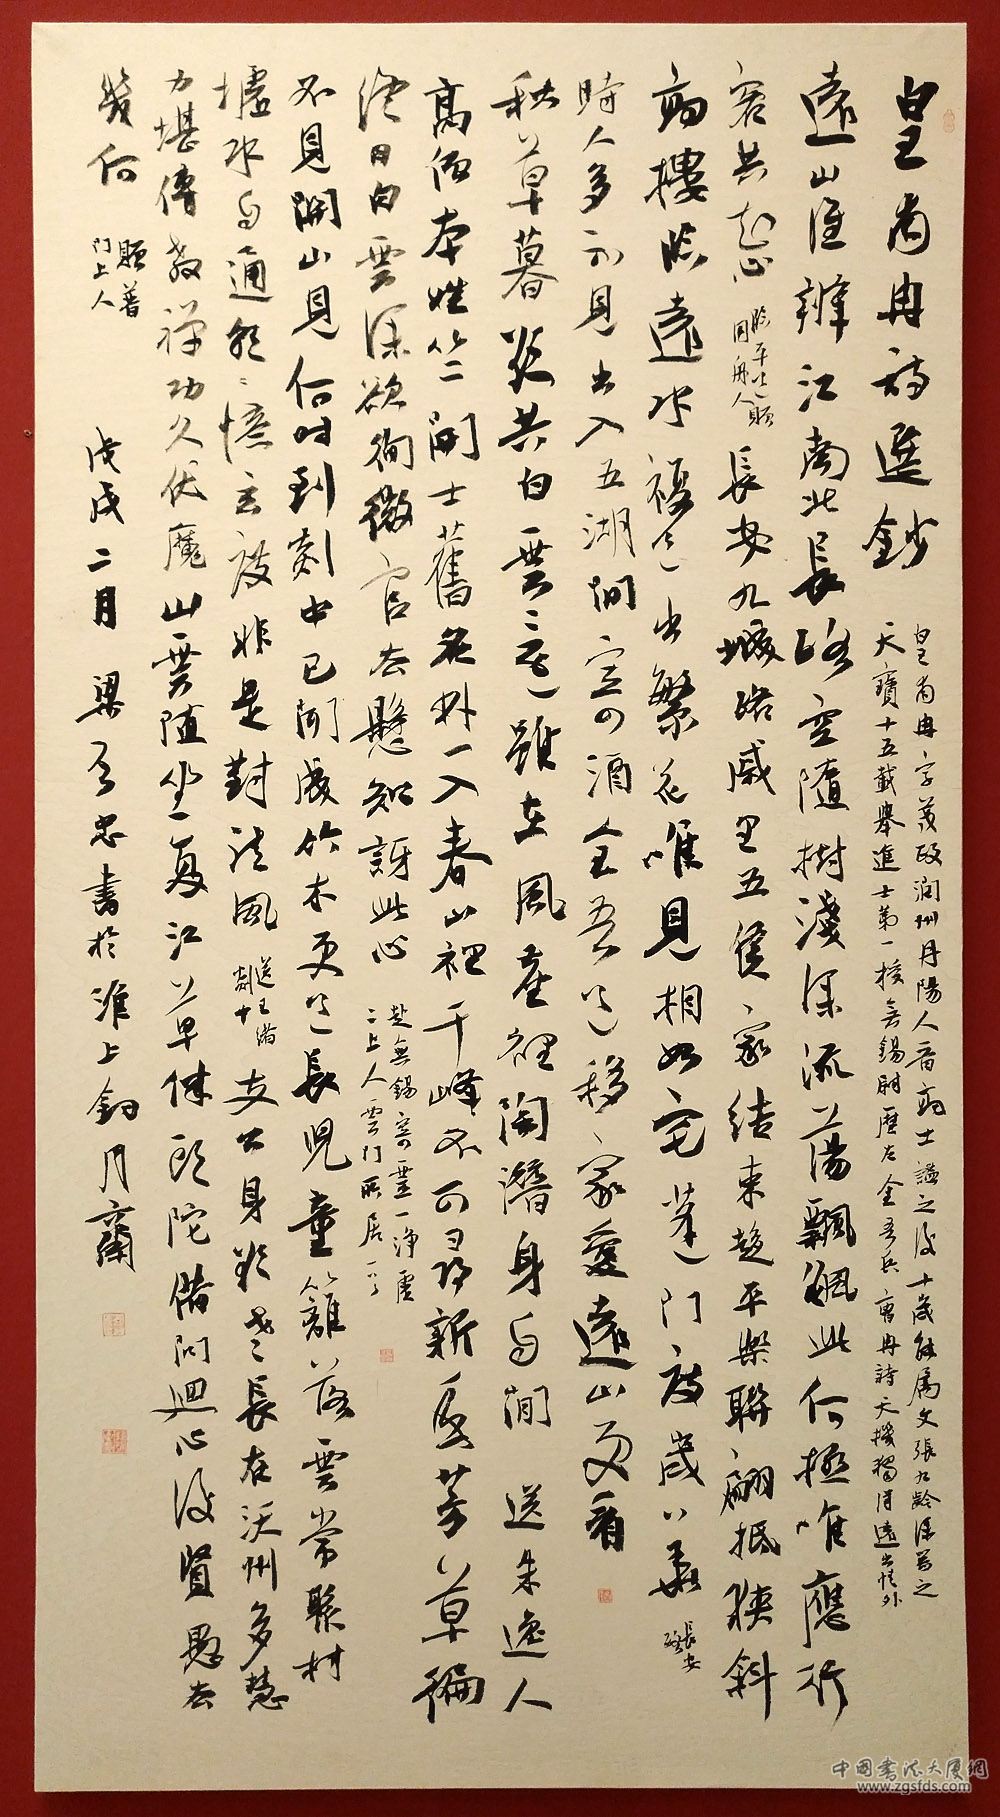 皇甫冉詩選鈔
皇甫冉字茂政潤州丹陽人晉高士謐之後十歲能屬文張九齡深器之
天寶十五載舉進士第一授無錫尉歷左金吾兵曹冉詩天機獨得遠出情外
遠山誰辨江南北長路空隨樹淺深流蕩飄飖此何極唯應行
客共知心 臨平道贈同舟人 長安九城路戚里五侯家結束趨平樂聯翩抵狹斜
高樓臨遠水複道出繁花唯見相如宅蓬門度歲華 長安路
時人多不見出入五湖間寄酒全吾道移家愛遠山更看
秋草暮欲共白雲還雖在風塵裡陶潛身自閒 送朱逸人
高僧本姓竺開士舊名林一入春山裡千峰不可尋新年芳草徧
終日白雲深欲徇微官去懸知訝此心 赴無錫寄靈一淨虛二上人雲門所居
不見開山見何時到剡中已聞成竹木更道長兒童籬落雲常聚村
墟水自通朝々憶玄度非是對清風 送王緒剡中 支公身欲老長在沃州多慧
力堪傳教禪功久伏魔山雲隨坐夏江草伴頭陀借問迴心後賢愚去
幾何 題普門上人
戊戌二月梁忠書於淮上釣月齋
中國書法大廈網
www.zgsfds.com